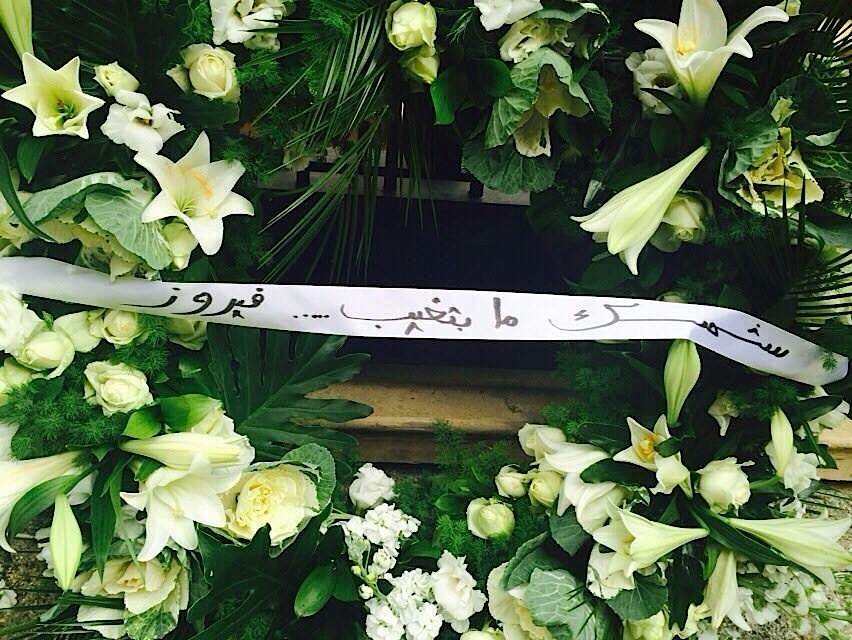 شمسك ما بتغيب .... فيروز